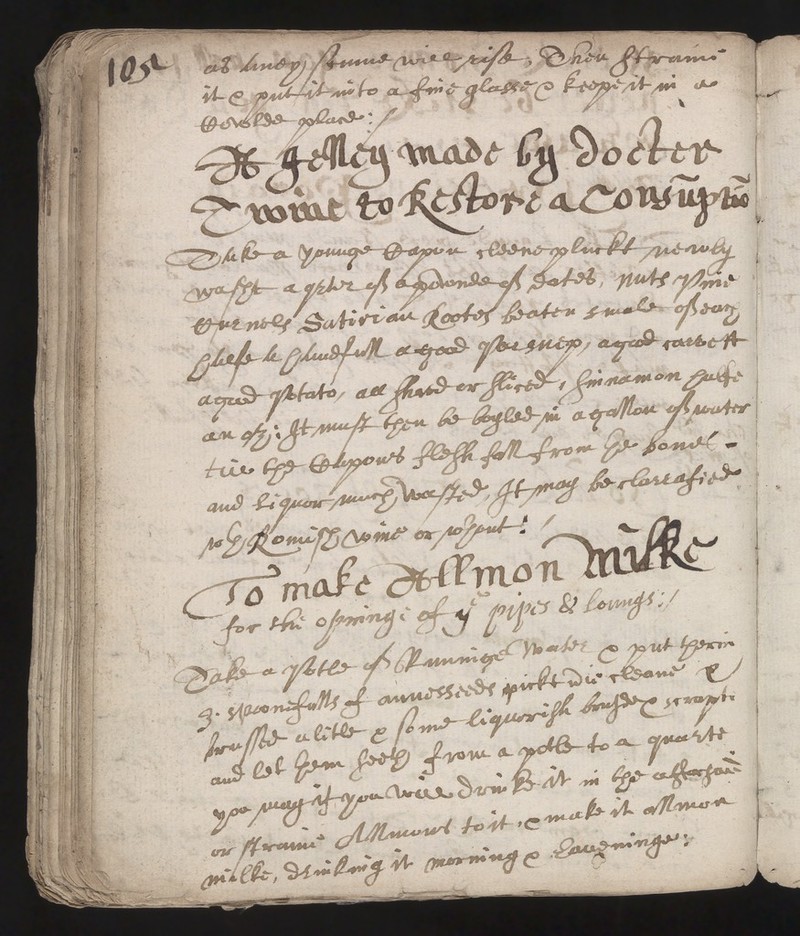 105
as any scume will rise, Then straine
it & put it into a fine glasse & keepe it in a
Coulde place:/
A Jelley made by Docter
Twine to Restore a Consūptiō
Take a younge Capon cleene pluckt newly
washt a qrter of a pounde of dates, nuts pine
Curnels Satirian Rootes beaten smale of each
halfe a handfull a good parsnep, a good carrett
a good potato, all shred or sliced, sinnamon halfe
an oz; It must then be boyled in a gallon of water
till the Capones flesh fall from he bones -
and liquor much wasted, It may be clarafied
wh Romish wine or whout:/
To make Allmon Milke
for the opninge of ye pipes & loungs://
Take a potle of Runninge Water & put therin
3. spoonefulls of annesseeds pickt cleane &
brussed a litle & some liquorish brusde & scrapt
and let hem seeth from a potle to a quarte
you may if you will drinke it in the
or straine Allmons to it, & make it allmon
milke, drinking it morning & Eaveninge: